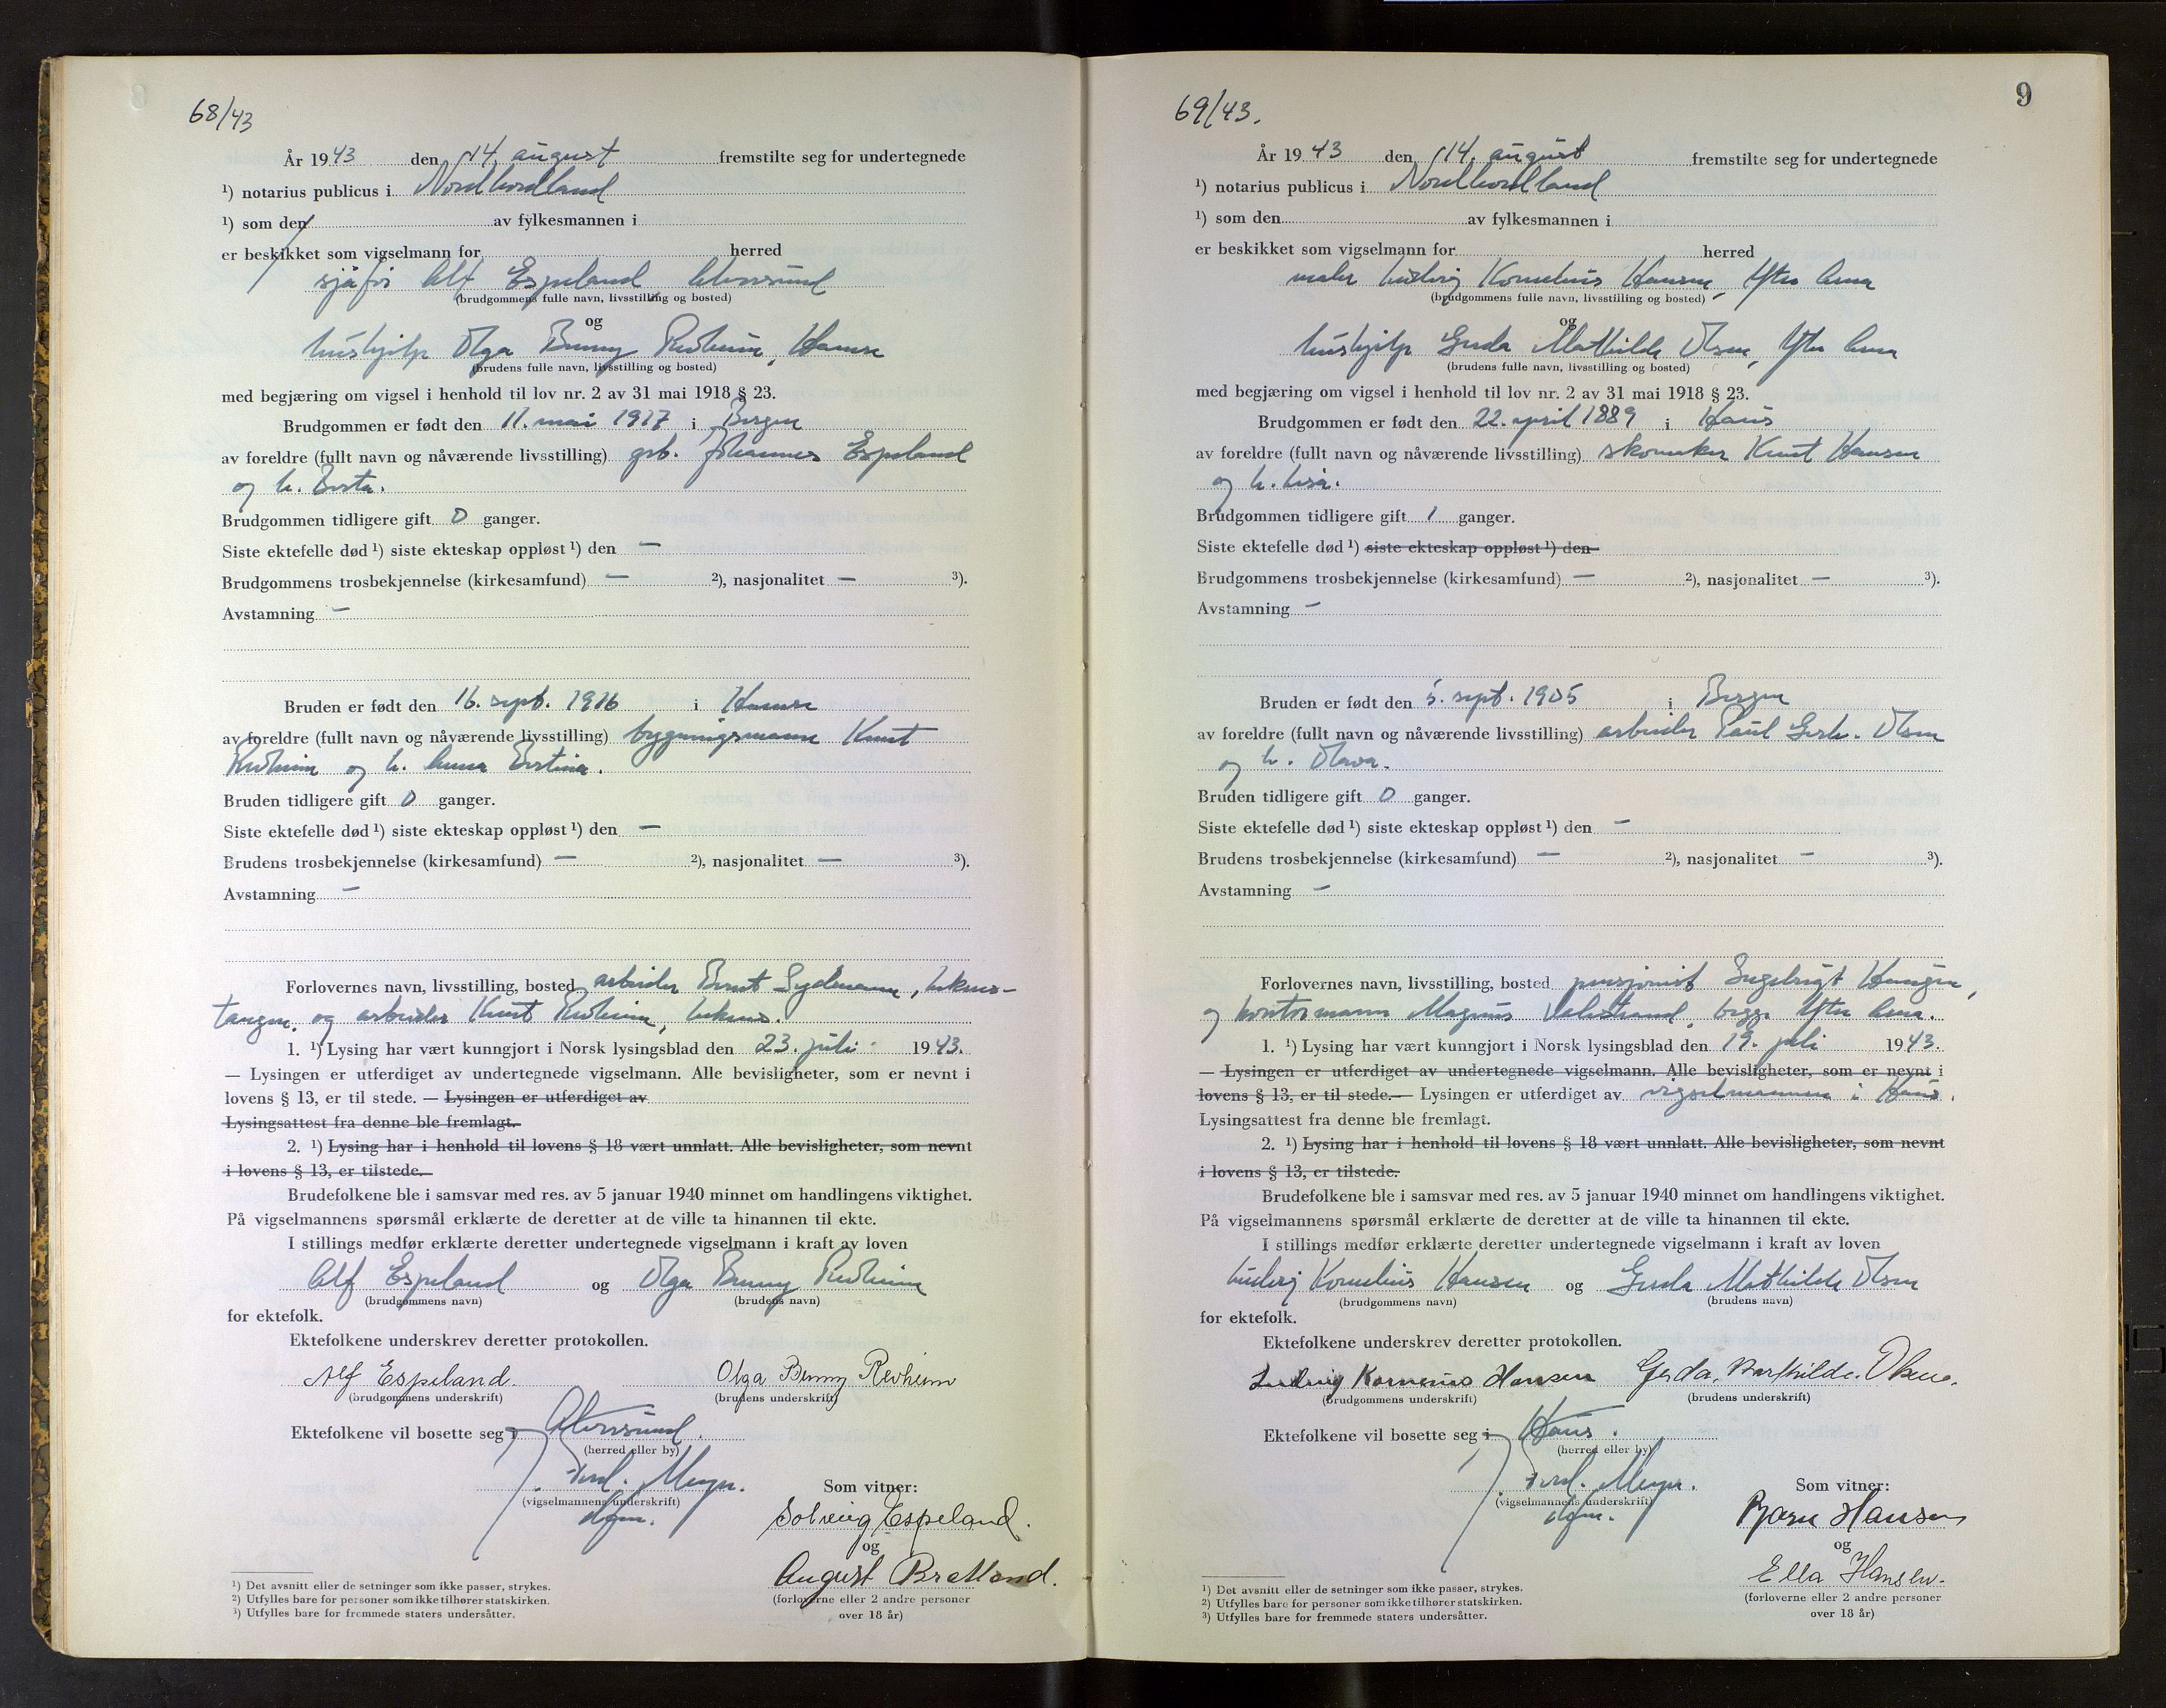 68/43
År 1943 den 14. august fremstilte seg for undertegnede
¹) notarius publicus i Nordhordland
¹) som den av fylkesmannen i
er beskikket som vigselmann for herred
sjåfør Alf Espeland Alversund
(brudgommens fulle navn, livsstilling og bosted)
og
hushjelp Olga Benny Revheim, Hamre
(brudens fulle navn, livsstilling og bosted)
med begjæring om vigsel i henhold til lov nr. 2 av 31 mai 1918 § 23.
Brudgommen er født den 11. mai 1917 i Bergen
av foreldre (fullt navn og nåværende livsstilling) grb. Johannes Espeland
og h. Berta.
Brudgommen tidligere gift 0 ganger.
Siste ektefelle død ¹) siste ekteskap oppløst ¹) den —
Brudgommens trosbekjennelse (kirkesamfund) — ²), nasjonalitet — ³).
Avstamning —
Bruden er født den 16. sept. 1916 i Hamre
av foreldre (fullt navn og nåværende livsstilling) bygningsmann Knut
Revheim og h. Anna Bertina.
Bruden tidligere gift 0 ganger.
Siste ektefelle død ¹) siste ekteskap oppløst ¹) den —
Brudens trosbekjennelse (kirkesamfund) — ²), nasjonalitet — ³).
Avstamning —
Forlovernes navn, livsstilling, bosted arbeider Bernt
tangen, og arbeider Knut Revheim,
1. ¹) Lysing har vært kunngjort i Norsk lysingsblad den 23. juli 1943.
— Lysingen er utferdiget av undertegnede vigselmann. Alle bevisligheter, som er nevnt i
lovens § 13, er til stede. — Lysingen er utferdiget av
Lysingsattest fra denne ble fremlagt.
2. ¹) Lysing har i henhold til lovens § 18 vært unnlatt. Alle bevisligheter, som nevnt
i lovens § 13, er tilstede.
Brudefolkene ble i samsvar med res. av 5 januar 1940 minnet om handlingens viktighet.
På vigselmannens spørsmål erklærte de deretter at de ville ta hinannen til ekte.
I stillings medfør erklærte deretter undertegnede vigselmann i kraft av loven
Alf Espeland og Olga Benny Revheim
(brudgommens navn) (brudens navn)
for ektefolk.
Ektefolkene underskrev deretter protokollen.
Alf Espeland. Olga Benny Revheim
(brudgommens underskrift) (brudens underskrift)
Ektefolkene vil bosette seg i Alversund.
(herred eller by)
Ferd. Meyer.
(vigselmannens underskrift)
Som vitner:
Solveig Espeland.
og
August Bratland.
(forloverne eller 2 andre personer
over 18 år)
¹) Det avsnitt eller de setninger som ikke passer, strykes.
²) Utfylles bare for personer som ikke tilhører statskirken.
³) Utfylles bare for fremmede staters undersåtter.
9
69/43.
År 1943 den 14. august fremstilte seg for undertegnede
¹) notarius publicus i Nordhordland
¹) som den av fylkesmannen i
er beskikket som vigselmann for herred
maler Ludvig Kornelius Hansen, Ytre Arna
(brudgommens fulle navn, livsstilling og bosted)
og
hushjelp Gerda Mathilde Olsen, Ytre Arna
(brudens fulle navn, livsstilling og bosted)
med begjæring om vigsel i henhold til lov nr. 2 av 31 mai 1918 § 23.
Brudgommen er født den 22. april 1889 i Haus
av foreldre (fullt navn og nåværende livsstilling) skomaker Knut Hansen
og h. Lisa.
Brudgommen tidligere gift 1 ganger.
Siste ektefelle død ¹) siste ekteskap oppløst ¹) den
Brudgommens trosbekjennelse (kirkesamfund) — ²), nasjonalitet — ³).
Avstamning —
Bruden er født den 5. sept. 1905 i Bergen
av foreldre (fullt navn og nåværende livsstilling) arbeider Paul Gerh. Olsen
og h. Olava.
Bruden tidligere gift 0 ganger.
Siste ektefelle død ¹) siste ekteskap oppløst ¹) den —
Brudens trosbekjennelse (kirkesamfund) — ²), nasjonalitet — ³).
Avstamning —
Forlovernes navn, livsstilling, bosted pensjonist Ingebrigt Haugen,
og kontormann Magnus Valestrand, begge Ytre Arna.
1. ¹) Lysing har vært kunngjort i Norsk lysingsblad den 19. juli 1943.
— Lysingen er utferdiget av undertegnede vigselmann. Alle bevisligheter, som er nevnt i
lovens § 13, er til stede. — Lysingen er utferdiget av vigselmannen i Haus.
Lysingsattest fra denne ble fremlagt.
2. ¹) Lysing har i henhold til lovens § 18 vært unnlatt. Alle bevisligheter, som nevnt
i lovens § 13, er tilstede.
Brudefolkene ble i samsvar med res. av 5 januar 1940 minnet om handlingens viktighet.
På vigselmannens spørsmål erklærte de deretter at de ville ta hinannen til ekte.
I stillings medfør erklærte deretter undertegnede vigselmann i kraft av loven
Ludvig Kornelius Hansen og Gerda Mathilde Olsen
(brudgommens navn) (brudens navn)
for ektefolk.
Ektefolkene underskrev deretter protokollen.
Ludvig Kornelius Hansen Gerda. Mathilde. Olsen.
(brudgommens underskrift) (brudens underskrift)
Ektefolkene vil bosette seg i Haus.
(herred eller by)
Ferd. Meyer.
(vigselmannens underskrift)
Som vitner:
Bjarne Hansen
og
Ella Hansen.
(forloverne eller 2 andre personer
over 18 år)
¹) Det avsnitt eller de setninger som ikke passer, strykes.
²) Utfylles bare for personer som ikke tilhører statskirken.
³) Utfylles bare for fremmede staters undersåtter.